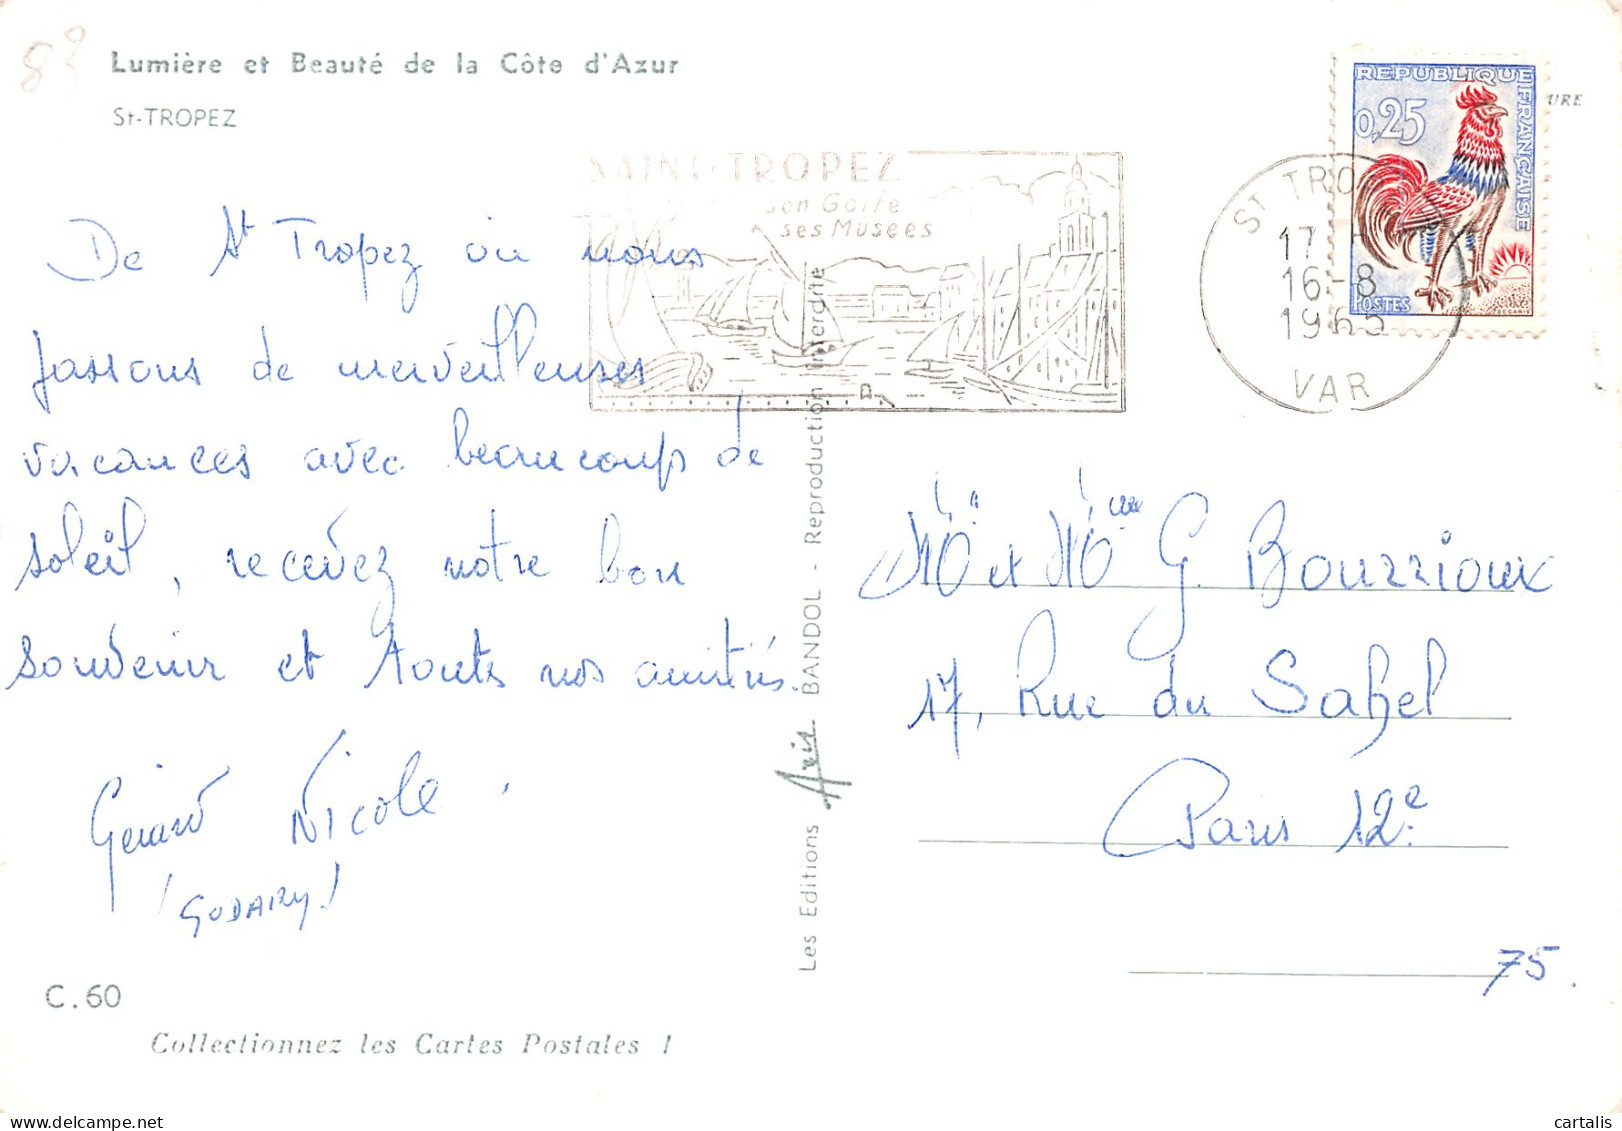 89
Lumière et Beauté de la Côte d'Azur
St-TROPEZ
SAINT-TROPEZ
son Golfe
ses Musees
ST TRO
17
16-8
1965
VAR
REPUBLIQUE FRANÇAISE
0,25
POSTES
DECARIS
URE
De St Tropez où nous
passons de merveilleuses
vacances avec beaucoup de
soleil, recevez notre bon
souvenir et toutes nos amitiés.
Gérard Nicole.
(GODARY)
Mr et Mme G. Bourrioux
17, Rue du Sahel
Paris 12e
75.
Les Editions Aris BANDOL - Reproduction interdite
C.60
Collectionnez les Cartes Postales !
cartalis
delcampe.net